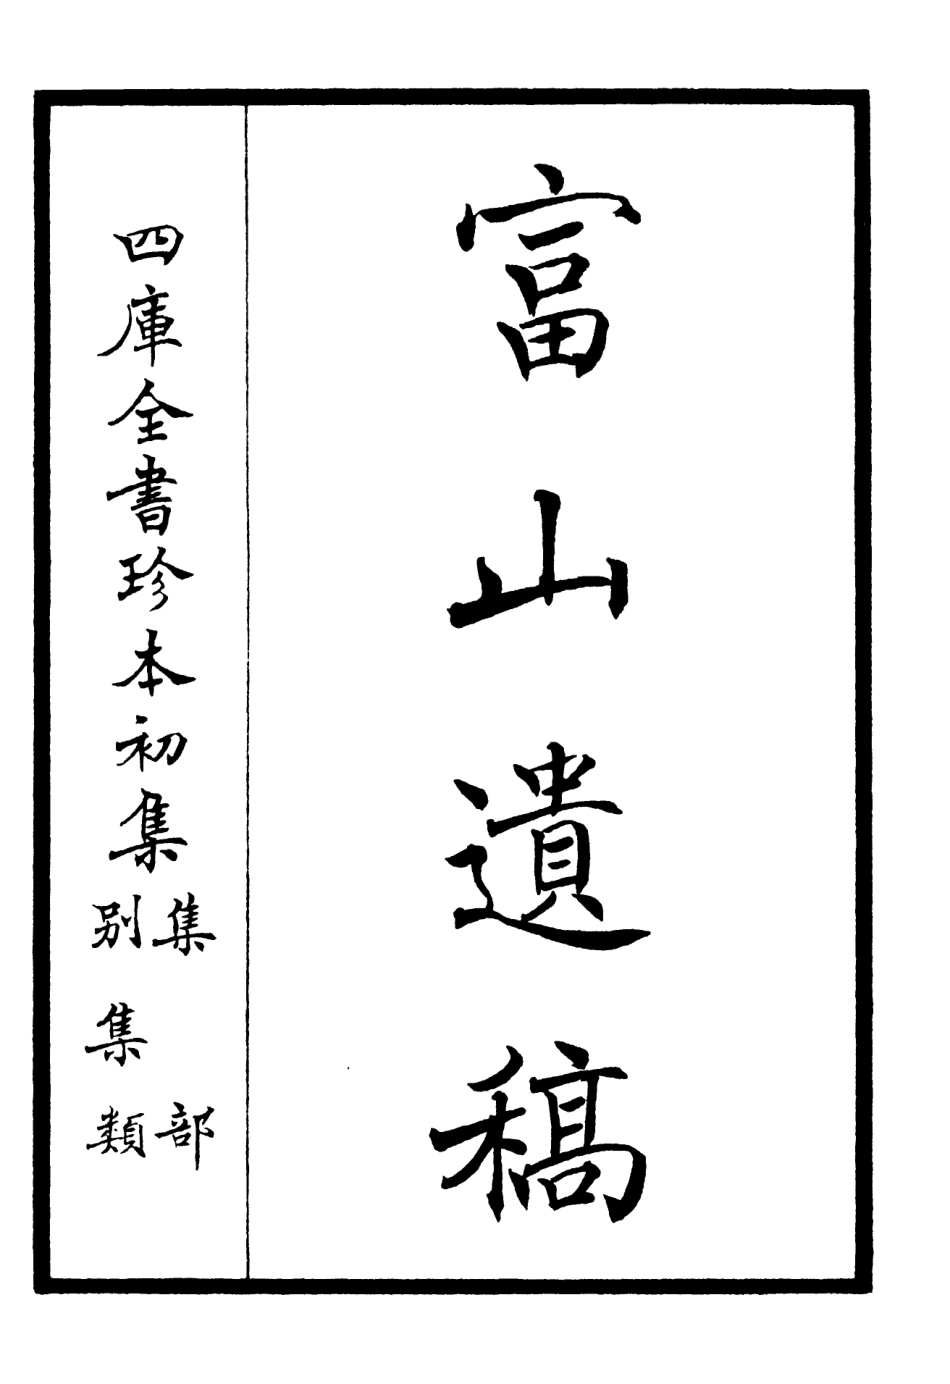 富山遺稿
四庫全書珍本初集
集部
別集類